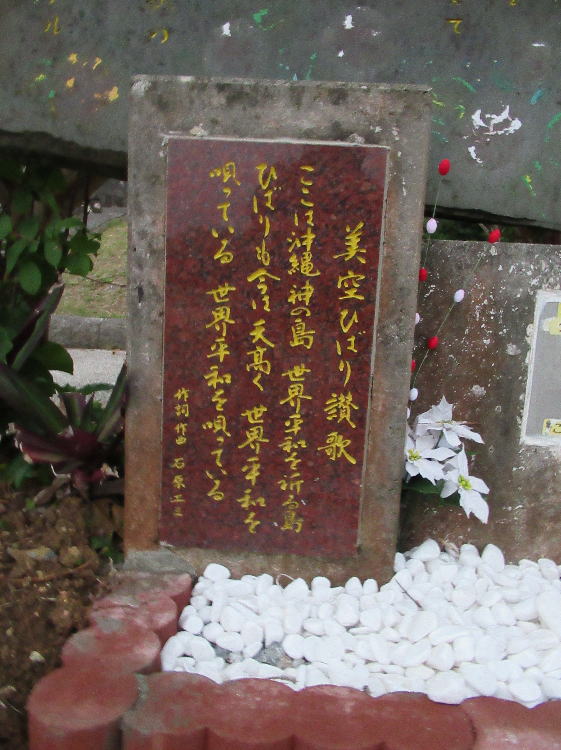 美空ひばり讃歌
ここは沖縄神の島 世界平和を祈る島
ひばりも今は天高く 世界平和を
唄っている 世界平和を唄っている
作詞作曲 石原エミ